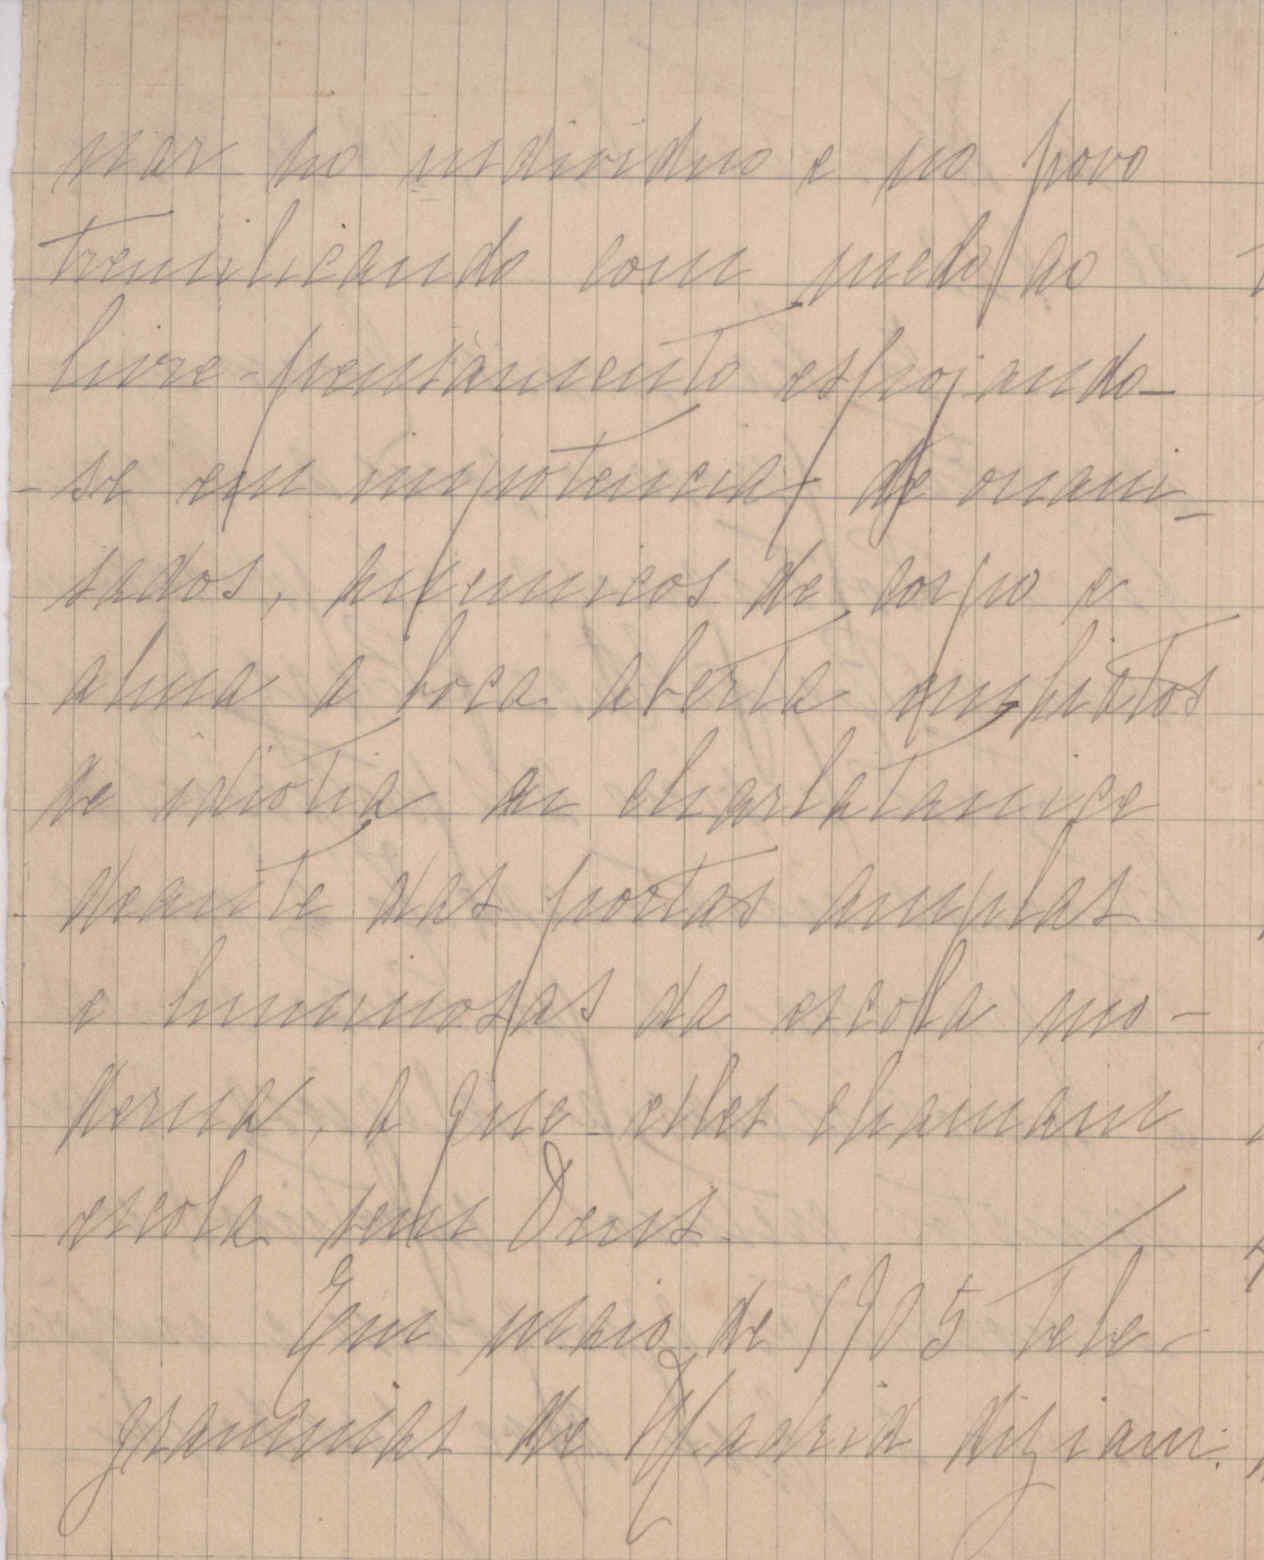 nar no individuo e no povo
tremilicando com medo ao
livre-pensamento espojando-
se em impotencias de onani-
sados, anemicos de corpo e
alma a boca aberta
de idiotia ou charlatanice
deante das portas amplas
e luminosas da escola mo-
derna, a que elles chamam
escola sem Deus.
Em maio de 1905 tele-
grammas de Madrid diziam: